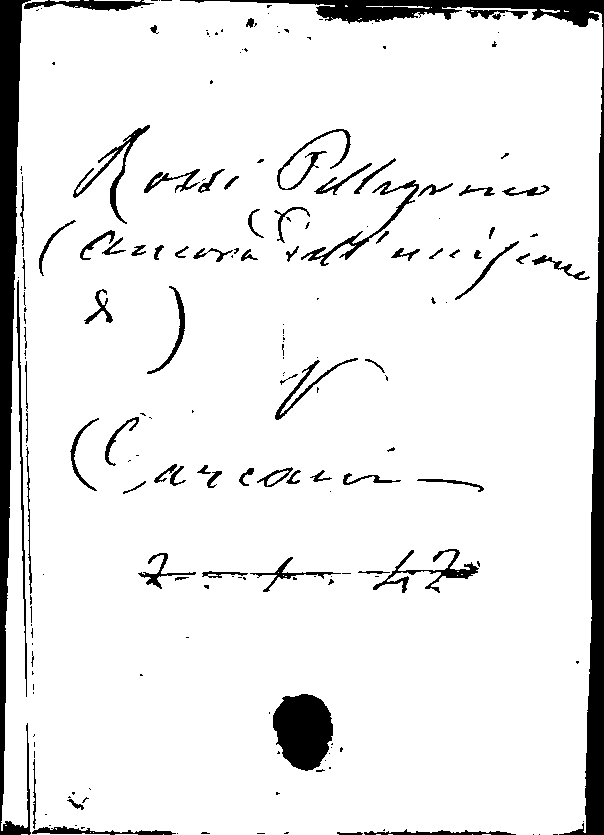 Rossi Pellegrino
(ancora dell'uccisione
&)
V
(Carcani
2 . 1 . 42